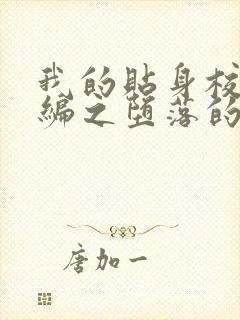 我的貼身校
编之堕落的
唐加一